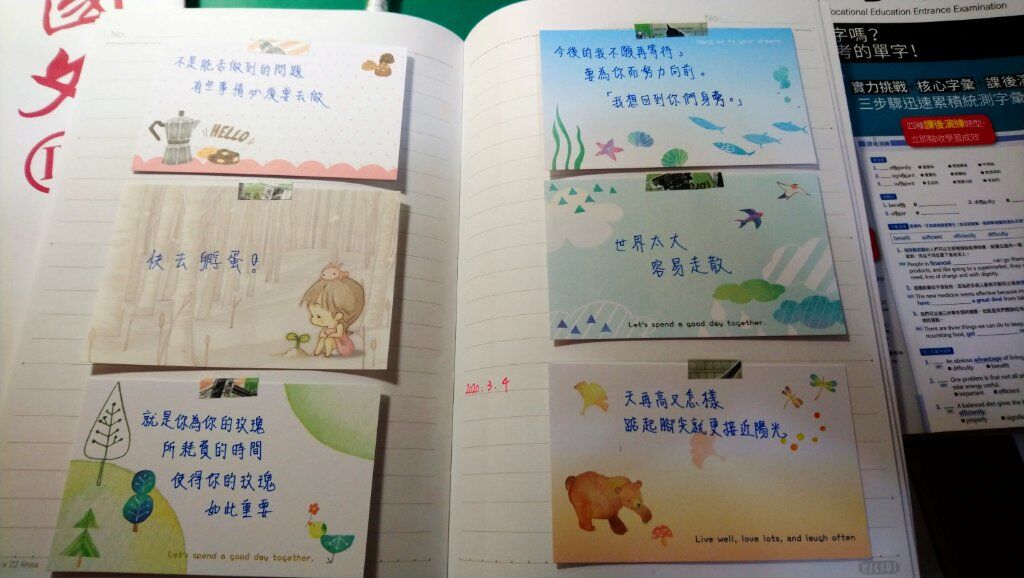 No.
不是能否做到的問題
有些事情必須要去做
HELLO
快去孵蛋!
就是你為你的玫瑰
所耗費的時間
使得你的玫瑰
如此重要
Let's spend a good day together.
x 22 lines
No.
Hang on to your dreams
今後的我不願再等待,
要為你而努力向前。
「我想回到你們身旁。」
世界太大
容易走散
Let's spend a good day together.
2020.3.4
天再高又怎樣
踮起腳尖就更接近陽光
Live well, love lots, and laugh often
ocational Education Entrance Examination
字嗎?
考的單字!
實力挑戰 核心字彙 課後演
三步驟迅速累積統測字彙
四種課後演練題型,
立即驗收學習成效
課後演練
1. efficiently
2. significant
3. sufficient
1. benefit
2. difficulty
5. officer
benefit sufficient efficiently difficulty
People in financial can go there
products, and like going to a supermarket, they
need, free of charge and with dignity.
The new medicine seems effective because m
here a great deal from ta
There are three things we can do to keep
nourishing food, get
1. An obvious advantage of living
difficulty benefit
2. One problem is that not all pl
solar energy useful.
important efficient
3. A balanced diet gives the
efficiently.
properly